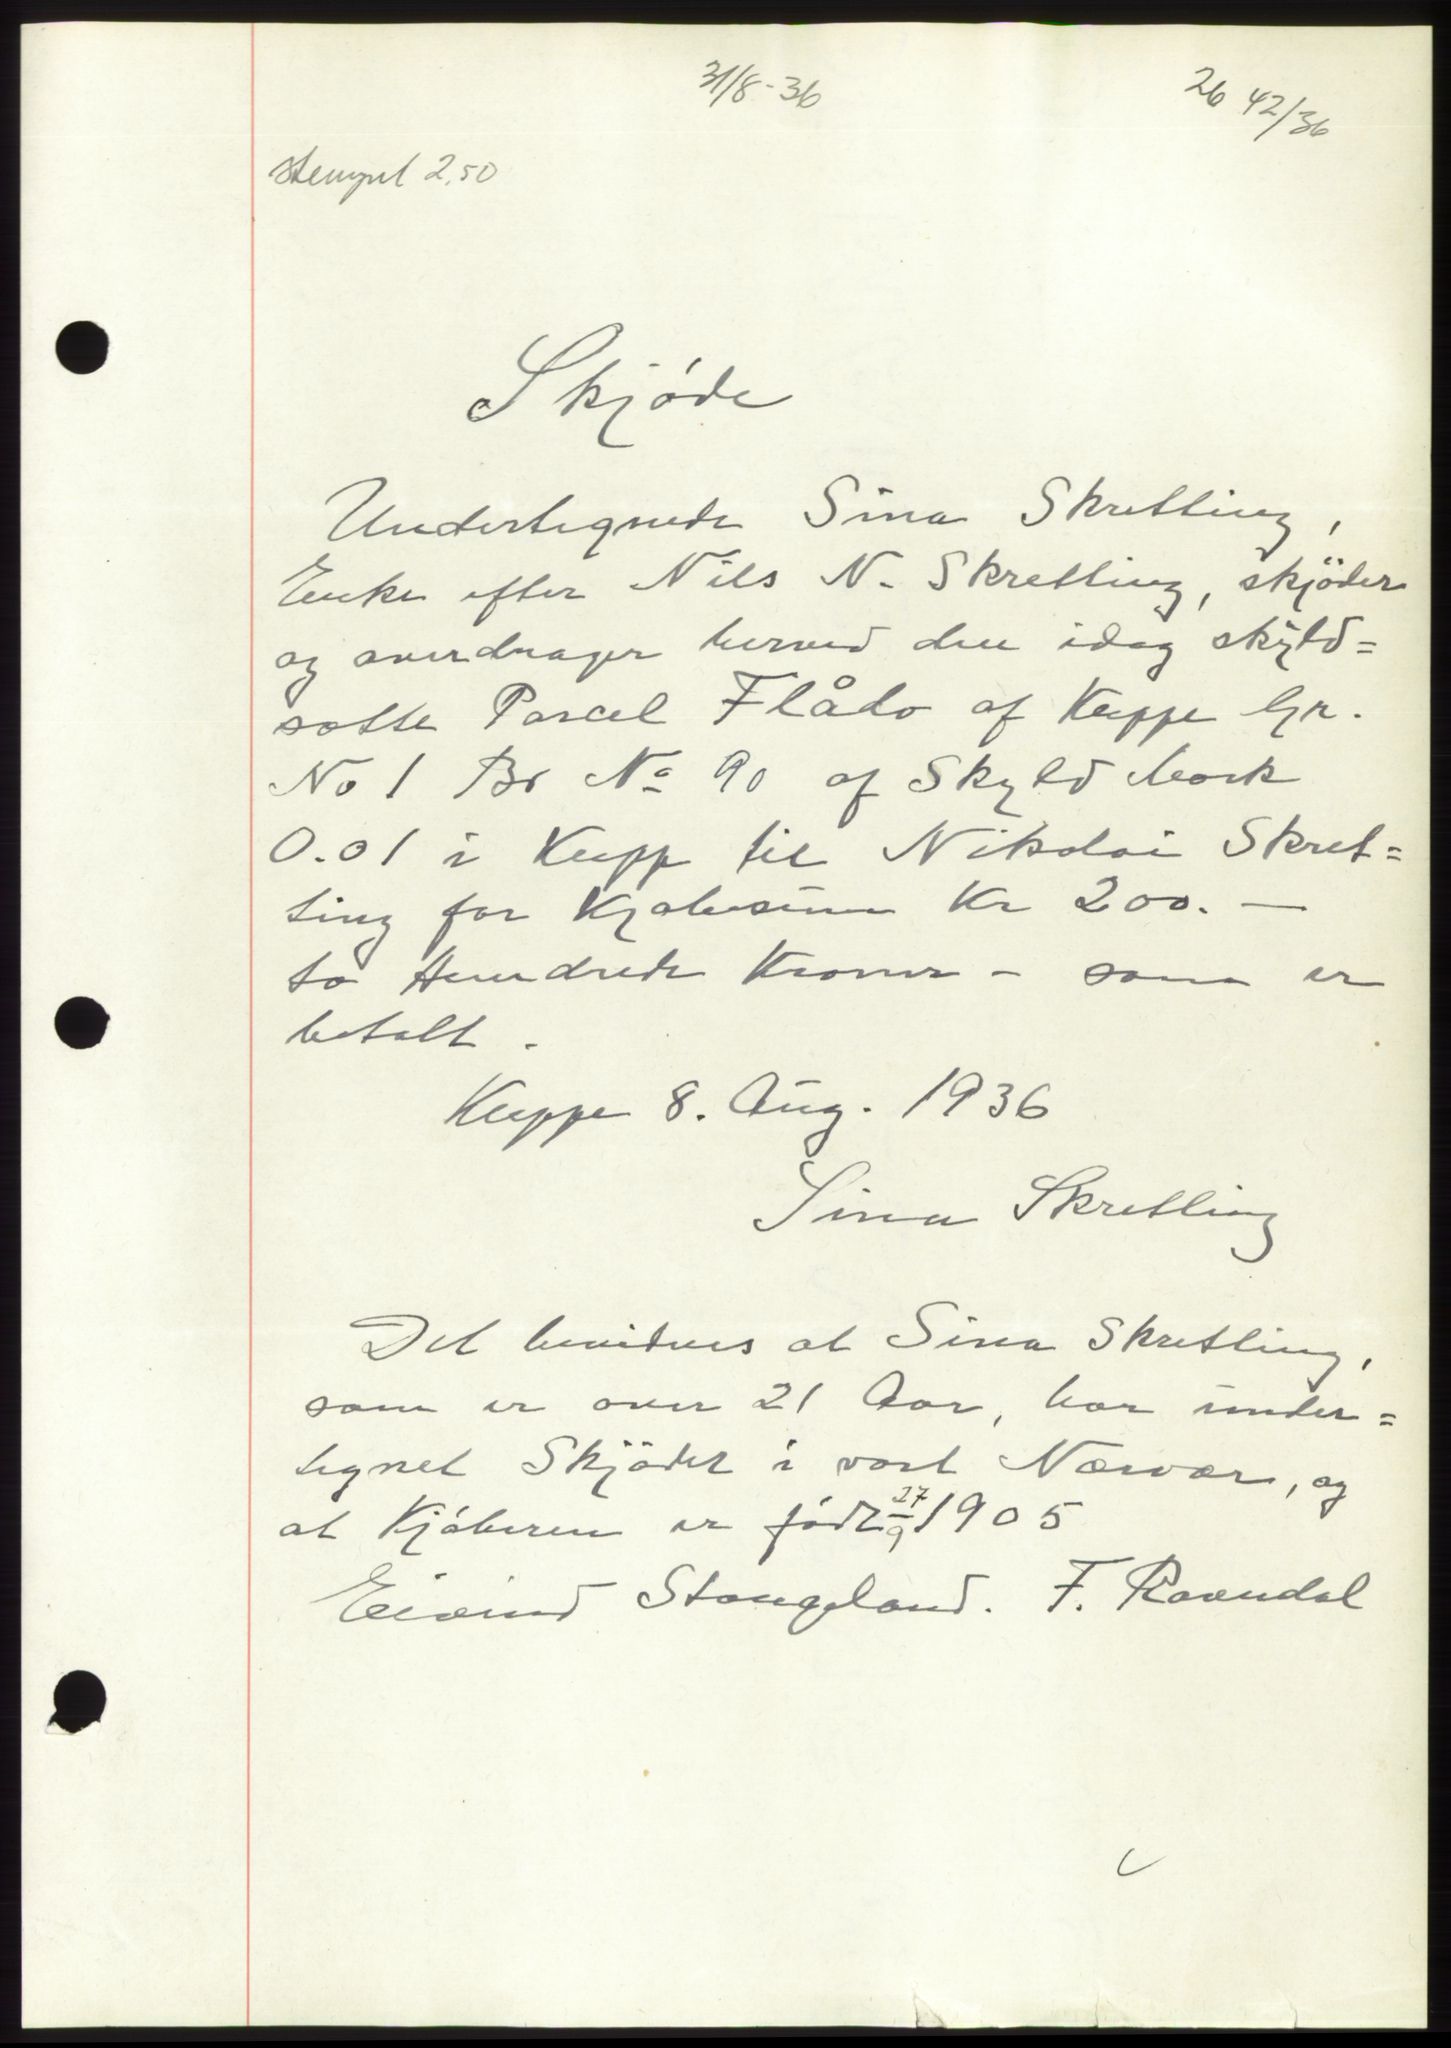 31/8-36
2642/36
stempel 2.50
Skjøde
Undertegnede Sina Skretting,
Enke efter Nils N. Skretting, skjöder
og overdrager herved den idag skyld=
satte Parcel Flåto af Kleppe Gr.
No 1 Br No 90 af Skyld Mark
0.01 i Klepp til Nikolai Skret=
ting for Kjøbesum Kr 200. —
to Hundrede Kroner - som er
betalt.
Kleppe 8. Aug. 1936
Sina Skretting
Det bevidnes at Sina Skretting,
som er over 21 Aar, har under=
tegnet Skjödet i vort Nærvær, og
at Kjøberen er født 27/9 1905
Eivind Stangeland. F. Ravndal